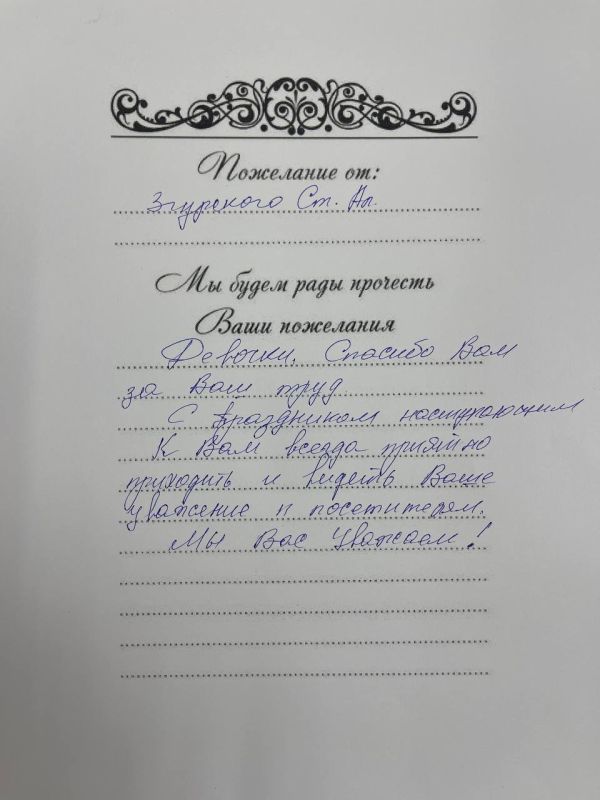 Пожелание от:
Згурского Ст. Ал.
Мы будем рады прочесть
Ваши пожелания
Девочки, Спасибо Вам
за Ваш труд
С праздником наступающим
К Вам всегда приятно
приходить и видеть Ваше
уважение к посетителям.
Мы Вас Уважаем!